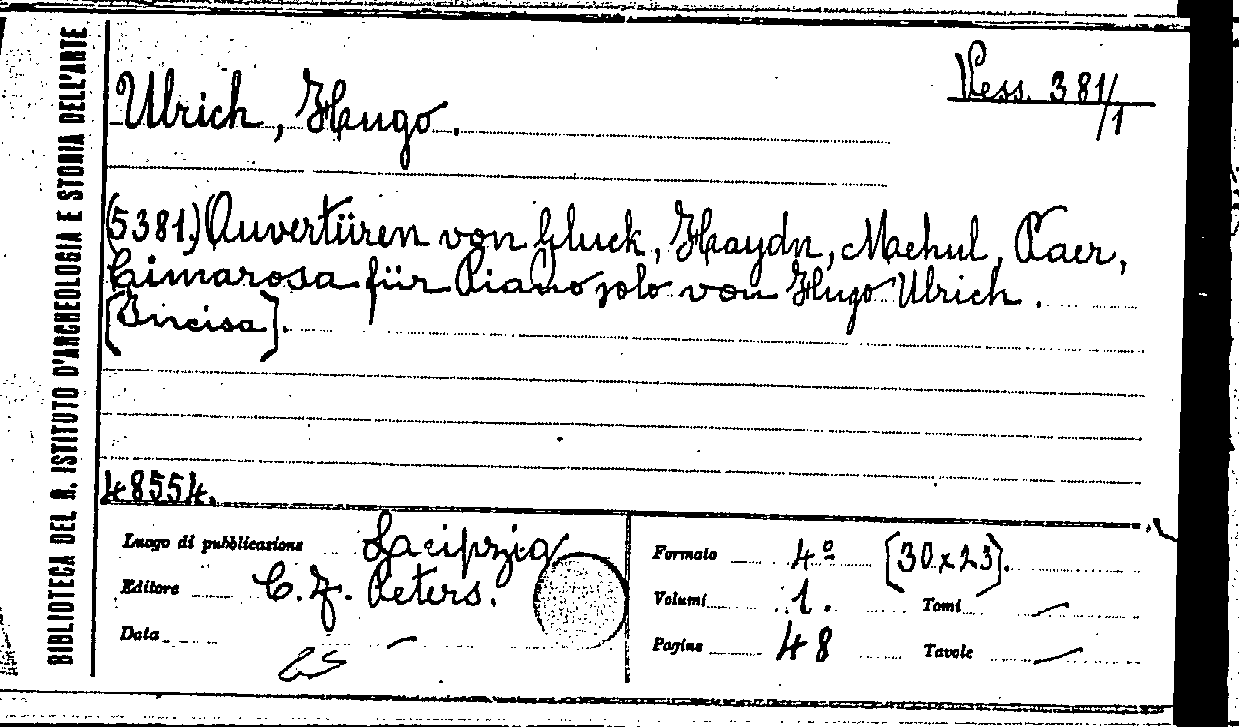 BIBLIOTECA DEL R. ISTITUTO D'ARCHEOLOGIA E STORIA DELL'ARTE
Vess. 381/1
Ulrich, Hugo.
(5381.) Ouvertüren von Gluck, Haydn, Mehul, Paer,
Cimarosa für Piano solo von Hugo Ulrich.
[Incisa].
48554.
Luogo di pubblicazione Lacipzig
Editore C. F. Peters.
Data —
Formato 4º [30x23].
Volumi 1. Tomi —
Pagine 48 Tavole —